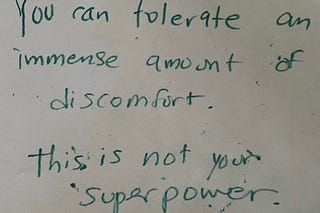 You can tolerate an
immense amount of
discomfort.
this is not your
superpower.